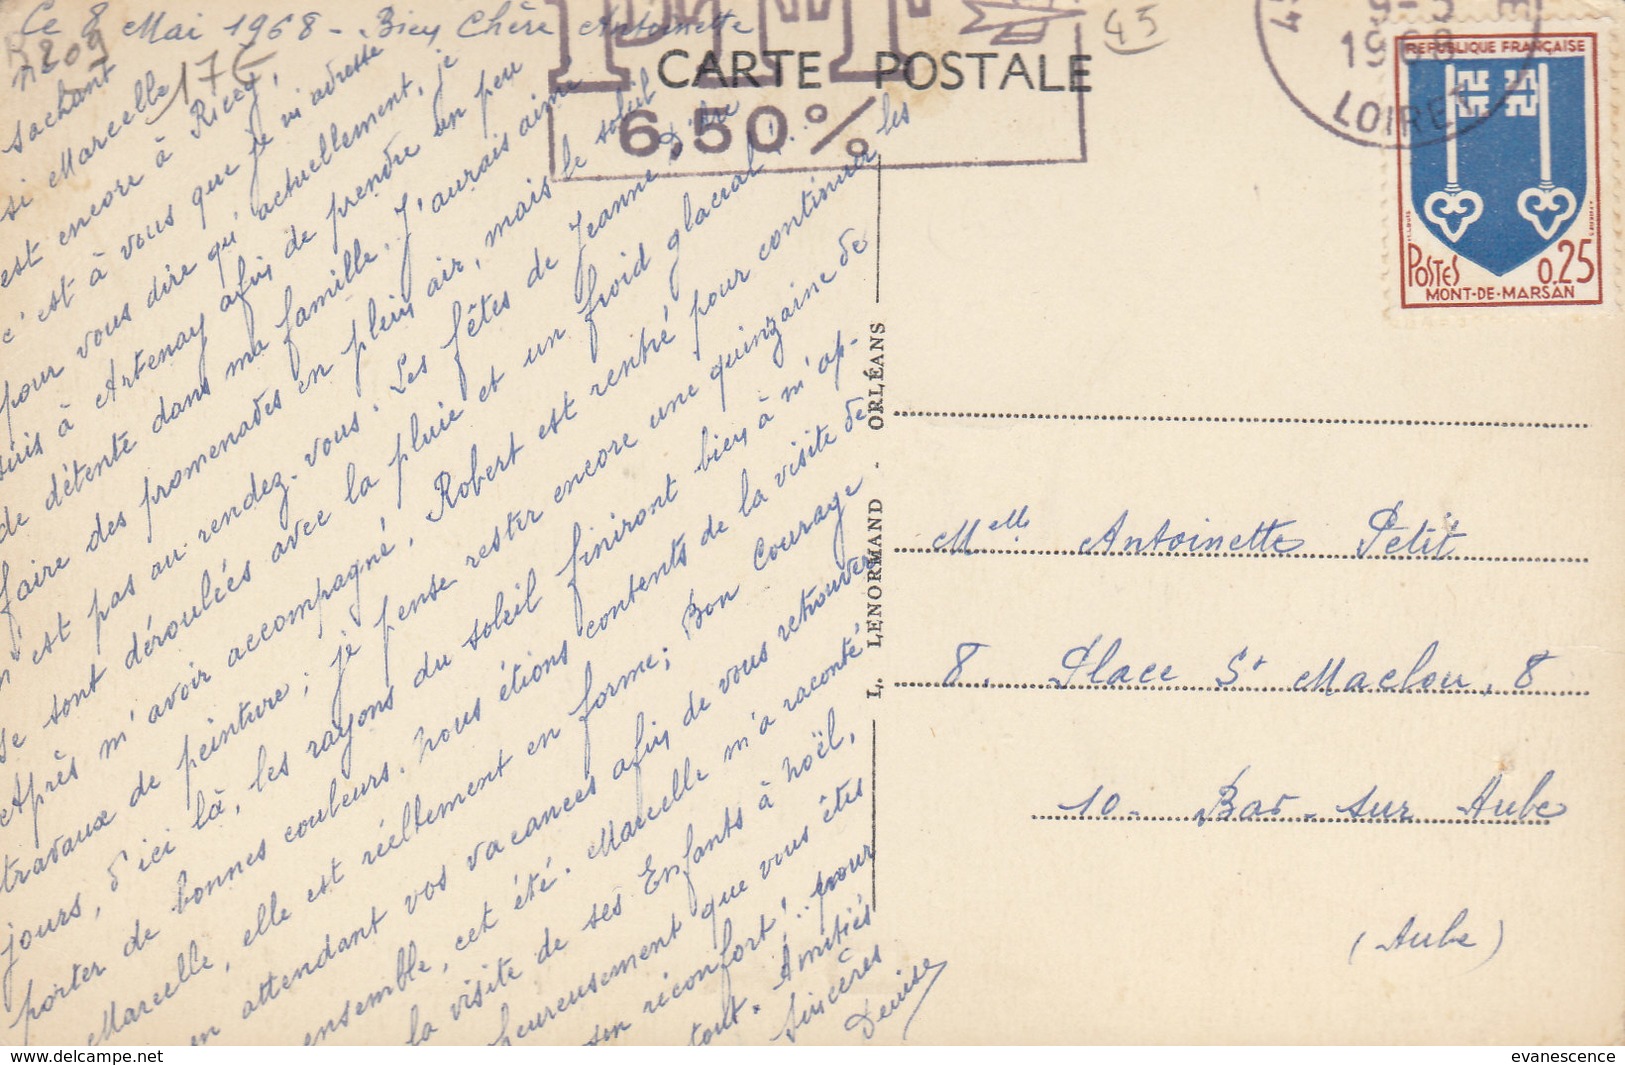 Ce 8 Mai 1968 - Bien Chère Antoinette
N209
17€
45
sachant
si Marcelle
est encore à Ricey,
c'est à vous que je m'adresse
pour vous dire qu'actuellement, je
suis à Artenay afin de prendre un peu
de détente dans ma famille. J'aurais aimé
faire des promenades en plein air, mais le soleil
n'est pas au rendez-vous. Les fêtes de Jeanne d'Arc
se sont déroulées avec la pluie et un froid glacial !...
Après m'avoir accompagné, Robert est rentré pour continuer les
travaux de peinture; je pense rester encore une quinzaine de
jours, d'ici là, les rayons du soleil finiront bien à m'ap-
porter de bonnes couleurs. Nous étions contents de la visite de
Marcelle, elle est réellement en forme; Bon Courage
en attendant vos vacances afin de vous retrouver
ensemble, cet été. Marcelle m'a raconté
la visite de ses Enfants à Noël,
heureusement que vous êtes
son réconfort! .. pour
tout. Amitiés
sincères
Denise
CARTE POSTALE
6,50%
1968
LOIRET
REPUBLIQUE FRANÇAISE
POSTES
0.25
MONT-DE-MARSAN
L. LENORMAND . ORLÉANS
Melle Antoinette Petit
8. Place St Maclou, 8
10 - Bar-sur Aube
(Aube)
evanescence